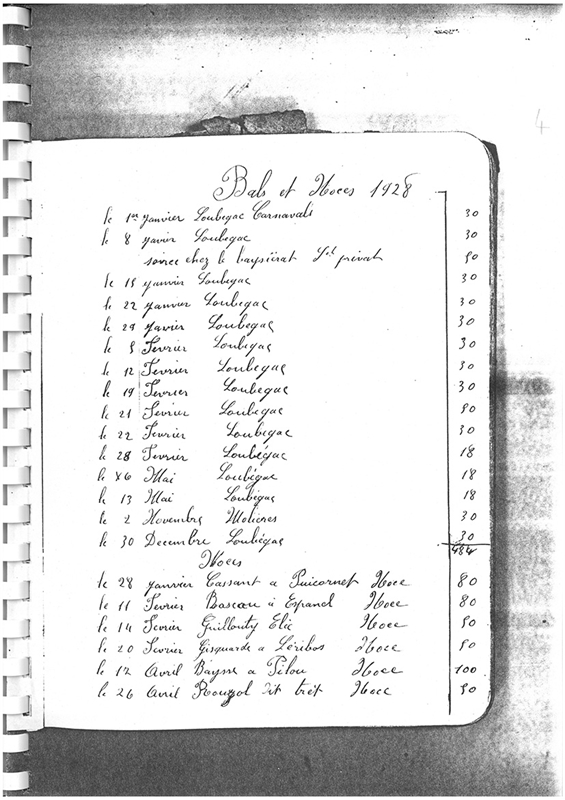 4
Bals et Noces 1928
le 1er janvier Loubegac Carnavals 30
le 8 javier Loubegac 30
soiree chez le St privat 50
le 15 janvier Loubegac 30
le 22 janvier Loubegac 30
le 29 javier Loubegac 30
le 5 Fevrier Loubegac 30
le 12 Fevrier Loubegac 30
le 19 Fevrier Loubegac 30
le 21 Fevrier Loubegac 50
le 22 Fevrier Loubegac 30
le 28 Fevrier Loubégac 18
le 6 Mai Loubégac 18
le 13 Mai Loubégac 18
le 2 Novembre Molieres 30
le 30 Decembre Loubégac 30
484
Noces
le 28 janvier Cassant a Puicornet Noce 80
le 11 Fevrier a Espanel Noce 80
le 14 Fevrier Guillouty Elie Noce 50
le 20 Fevrier Gisquarde a Léribos Noce 50
le 12 Avril Baysse a Pilou Noce 100
le 26 Avril Rouzol dit Noce 50